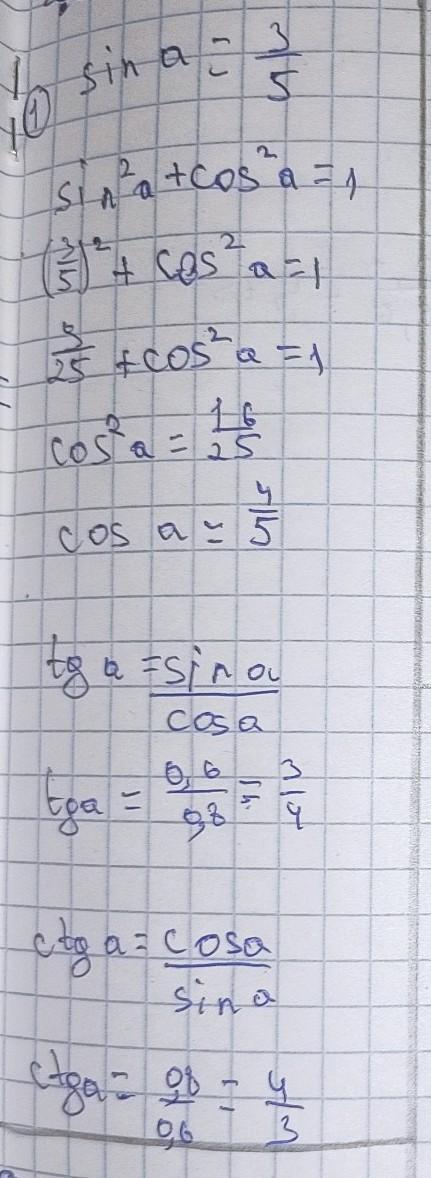 ① sin a = 3/5
sin²a + cos²a = 1
(3/5)² + cos²a = 1
9/25 + cos²a = 1
cos²a = 16/25
cos a = 4/5
tg a = sin a / cos a
tg a = 0,6/0,8 = 3/4
ctg a = cos a / sin a
ctg a = 0,8/0,6 = 4/3